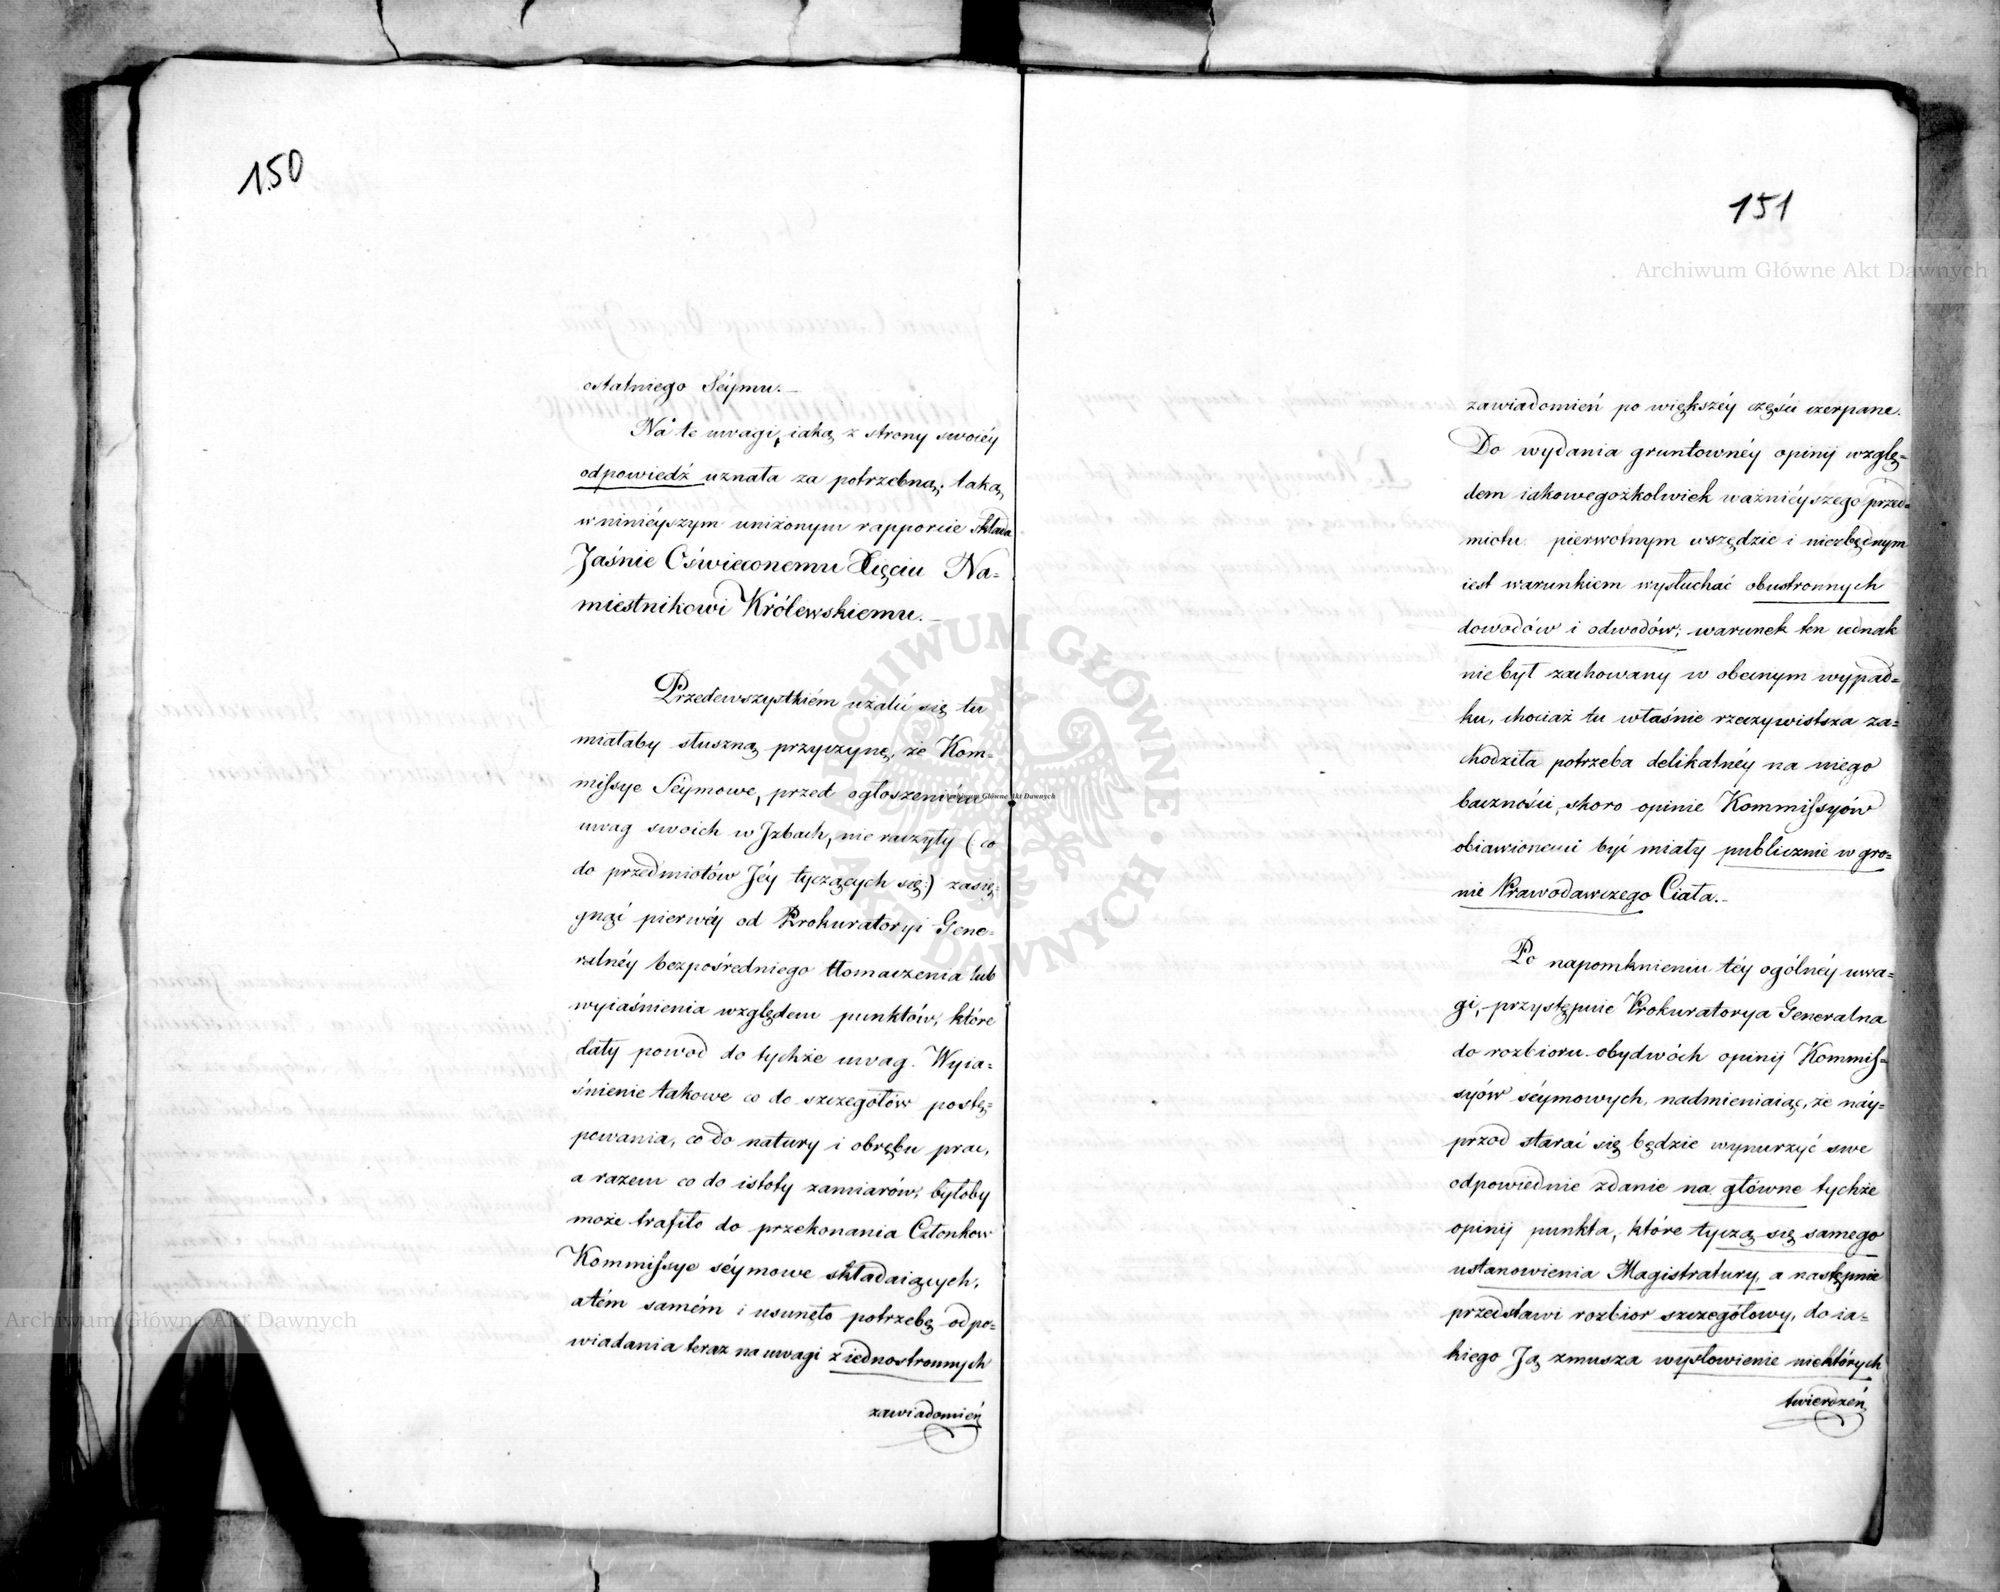 150
ostatniego Séymu.—
Na te uwagi, iaką z strony swoiéy
odpowiedź uznała za potrzebną, taką
w ninieyszym uniżonym rapporcie składa
Jaśnie Oświeconemu Xięciu Na-
miestnikowi Królewskiemu.—
Przedewszystkiém użalić się tu
miałaby słuszną przyczynę, że Kom-
missye Seymowe, przed ogłoszeniem
uwag swoich w Izbach, nie raczyły (: co
do przedmiotów Jéy tyczących się:) zasię-
gnąć pierwéy od Prokuratoryi Gene-
ralnéy bezpośredniego tłomaczenia lub
wyiaśnienia względem punktów, które
dały powod do tychże uwag. Wyia-
śnienie takowe co do szczegółów postę-
powania, co do natury i obrębu prac,
a razem co do istoty zamiarów, byłoby
może trafiło do przekonania Członkow
Kommissye séymowe składaiących,
a tém samém i usunęło potrzebę odpo-
wiadania teraz na uwagi z iednostronnych
zawiadomień
151
zawiadomień po większéy części czerpane.
Do wydania gruntownéy opinij wzglę-
dem iakowegożkolwiek ważnieyszego przed-
miotu pierwotnym wszędzie i niezbędnym
iest warunkiem wysłuchać obustronnych
dowodów i odwodów; warunek ten iednak
nie był zachowany w obecnym wypad-
ku, chociaż tu właśnie rzeczywistsza za-
chodziła potrzeba delikatnéy na niego
baczności, skoro opinie Kommissyów
obiawionemi być miały publicznie w gro-
nie Prawodawczego Ciała.—
Po napomknieniu téy ogólnéy uwa-
gi, przystępuie Prokuratorya Generalna
do rozbioru obydwóch opinij Kommis-
syów séymowych, nadmieniaiąc, że náy-
przod starać się będzie wynurzyć swe
odpowiednie zdanie na główne tychże
opinij punkta, które tyczą się samego
ustanowienia Magistratury, a następnie
przedstawi rozbior szczegółowy, do ia-
kiego Ją zmusza wysłowienie niektórych
twierdzeń
Archiwum Główne Akt Dawnych
Archiwum Główne Akt Dawnych
Archiwum Główne Akt Dawnych
ARCHIWUM GŁÓWNE AKT DAWNYCH